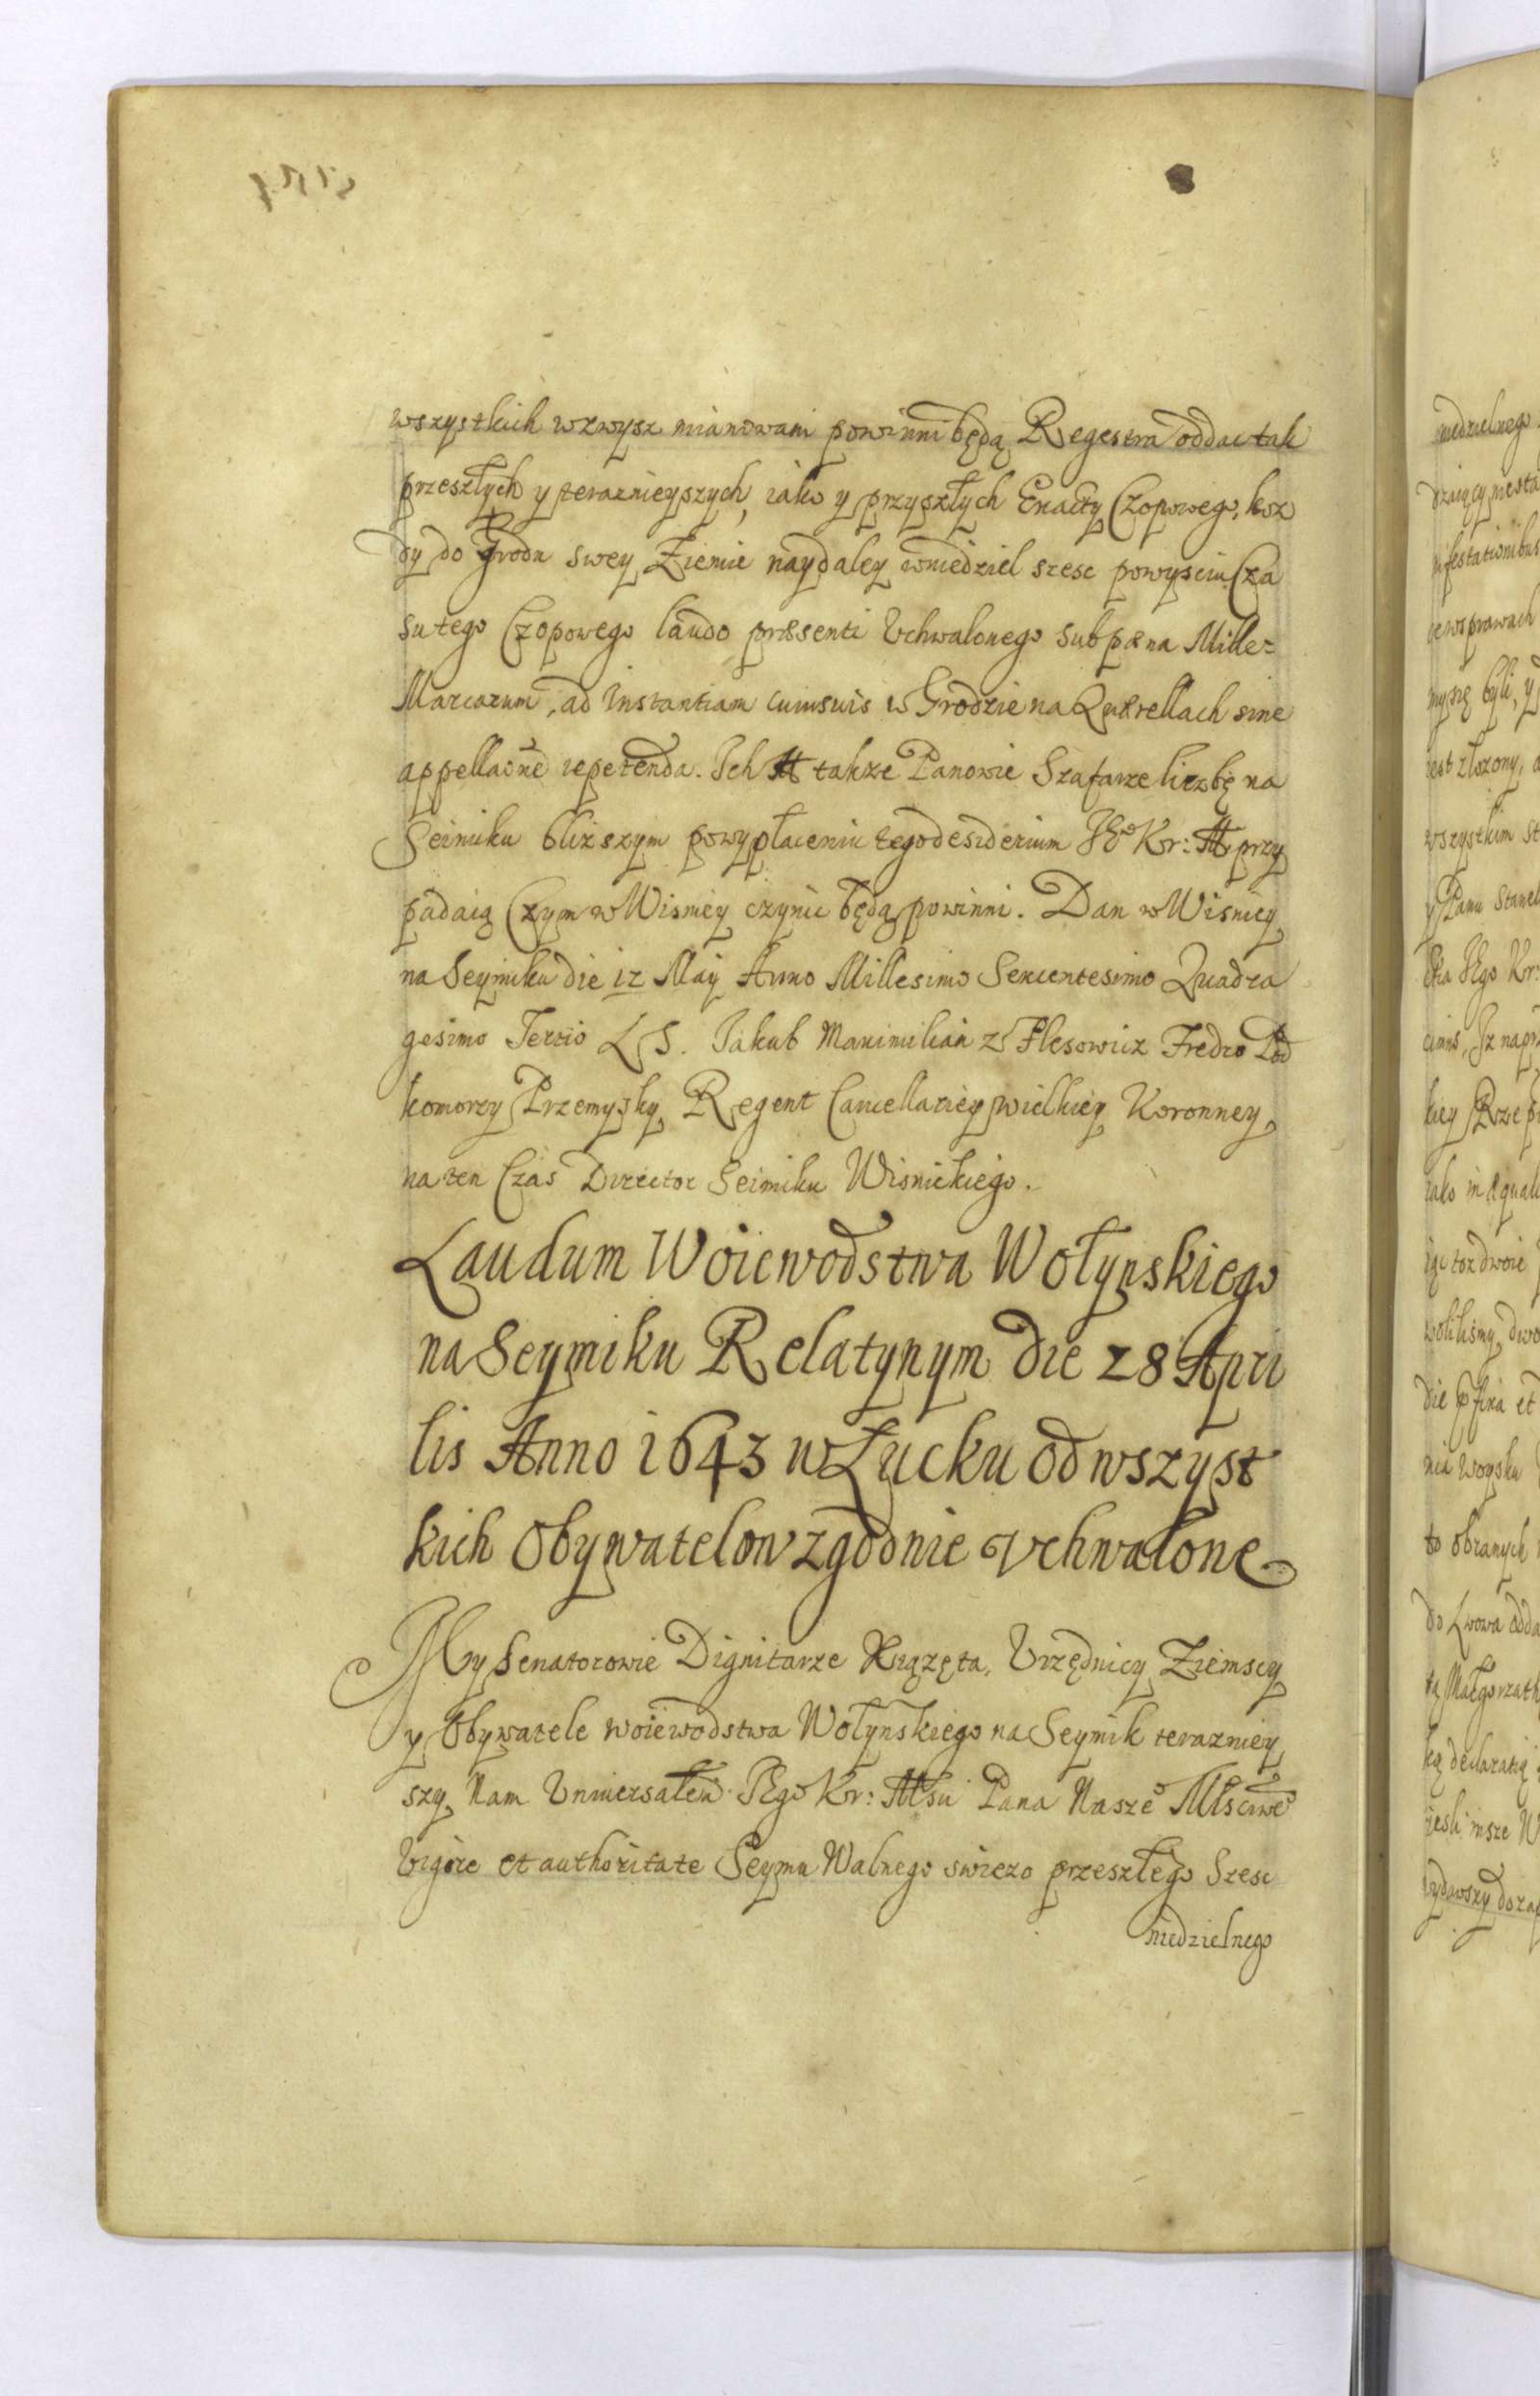 wszystkich wzwysz mianowani powinni będą Regestra oddac tak
przeszłych y teraznieyszych, iako y przyszłych Exacty Czopowego, koz
dy do Grodu swey Ziemie naydaley wniedziel szesc powysciu Cza
su tego Czopowego laudo præsenti Vchwalonego sub pæna Mille
Marcarum, ad Instantiam cuiusuis w Grodzie na Quærellach sine
appellaōne repetenda. Ich M takze Panowie Szafarze liczbę na
Seimiku blizszym powypłaceniu tego desiderium JEo Kr: M przy
padaią Czym w Wisniey czynic będą powinni. Dan w Wisniey
na Seymiku die 12 May Anno Millesimo Sexcentesimo Quadra
gesimo Tertio LS. Jakub Maximilian z Plesowicz Fredro Pod
komorzy Przemysky Regent Cancellariey wielkiey Koronney
na ten Czas Director Seimiku Wisnickiego.
Laudum Woiewodstwa Wołynskiego
na Seymiku Relatynym die 28 Apri
lis Anno 1643 w Łucku od wszyst
kich Obywatelow zgodnie Vchwalone
My Senatorowie Dignitarze Xiązęta, Vrzędnicy Ziemscy
y Obywatele woiewodstwa Wołynskiego na Seymik terazniey
szy Nam Vniwersałem JEgo Kr: Msci Pana Naszeo Młsciweo
Vigore et authoritate Seymu Walnego swiezo przeszłego Szesc
niedzielnego